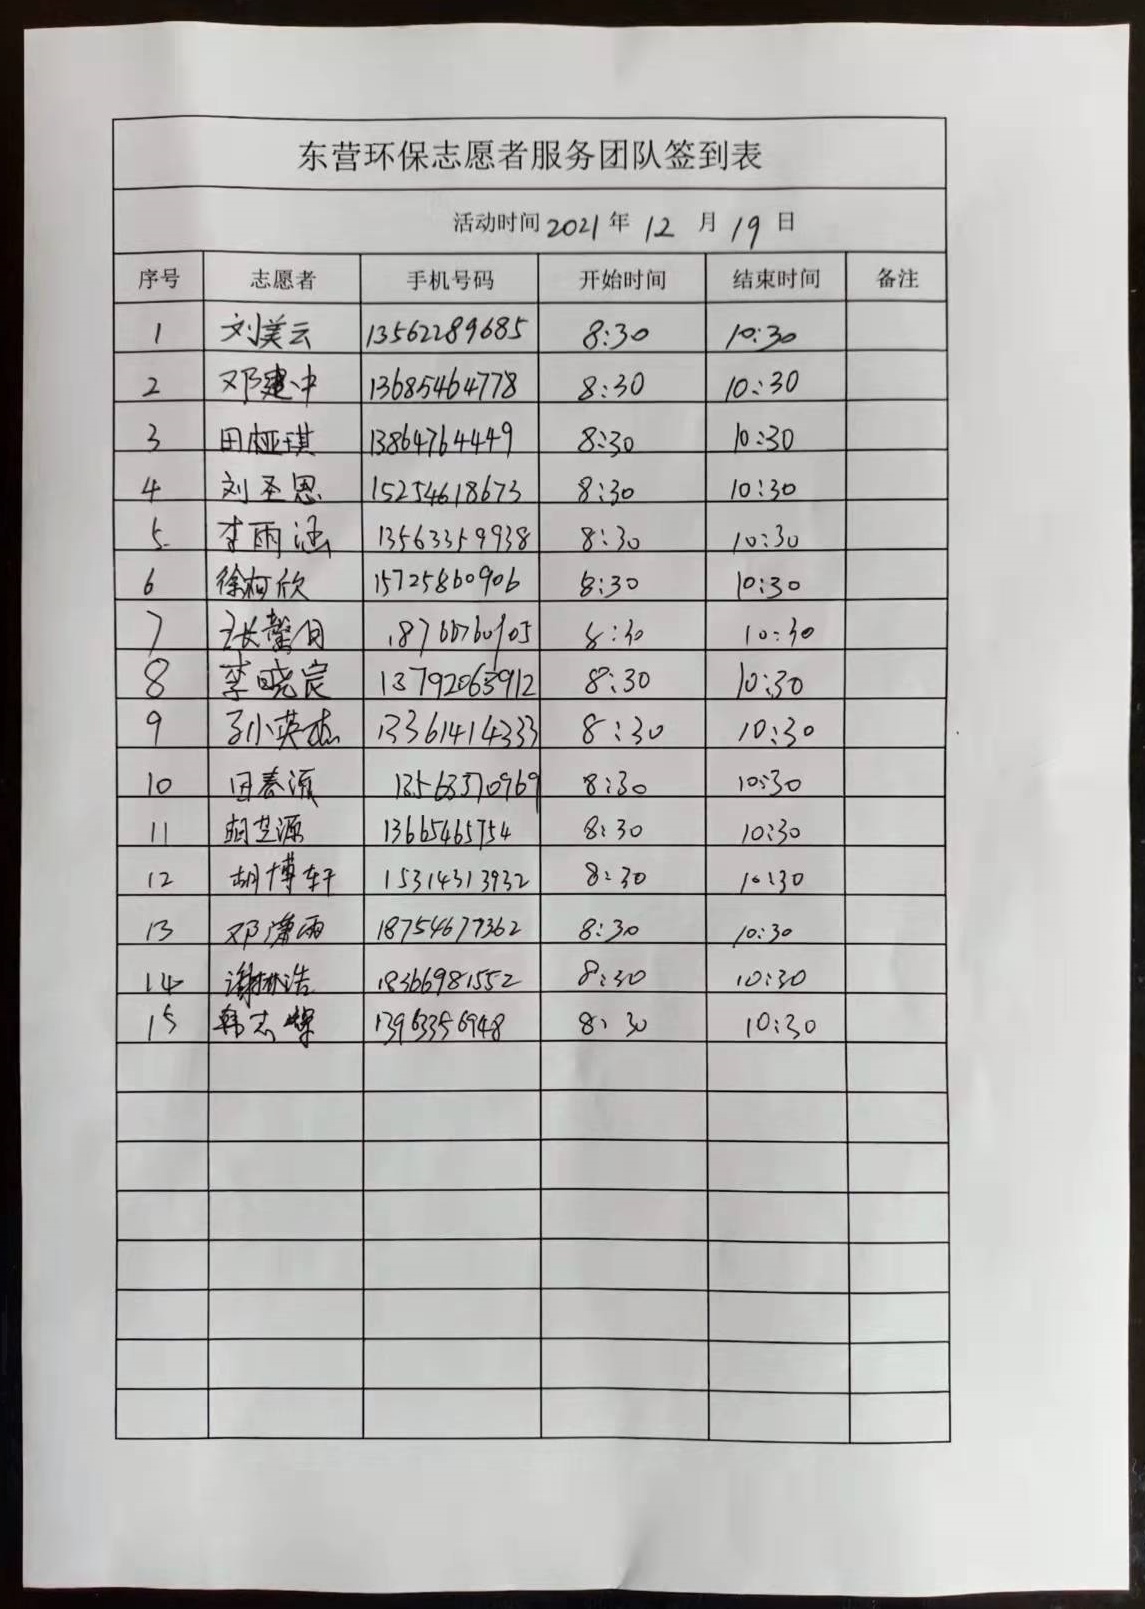 东营环保志愿者服务团队签到表
活动时间2021年12月19日
序号 志愿者 手机号码 开始时间 结束时间 备注
1 刘美云 13562289685 8:30 10:30
2 邓建中 13685464778 8:30 10:30
3 田桠琪 13864764449 8:30 10:30
4 刘圣恩 15254618673 8:30 10:30
5 李雨涵 13563359938 8:30 10:30
6 徐柯欣 15725860906 8:30 10:30
7 8:30 10:30
8 李晓宸 13792063912 8:30 10:30
9 孙英杰 13361414333 8:30 10:30
10 田春源 13563370969 8:30 10:30
11 胡芝源 13665465754 8:30 10:30
12 胡博轩 15314313932 8:30 10:30
13 邓潇雨 18754677362 8:30 10:30
14 谢林浩 18366981552 8:30 10:30
15 韩志 13963356948 8:30 10:30